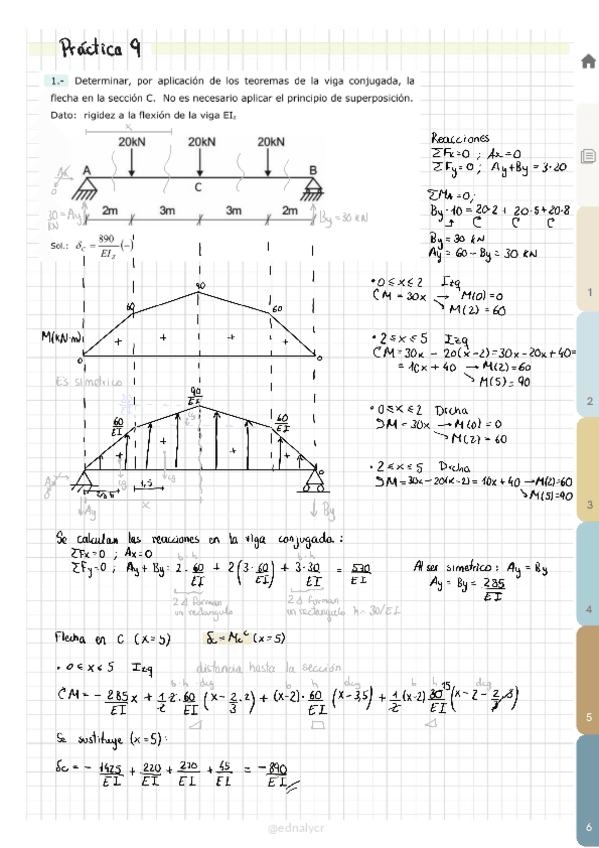 Práctica 9
1.- Determinar, por aplicación de los teoremas de la viga conjugada, la
flecha en la sección C. No es necesario aplicar el principio de superposición.
Dato: rigidez a la flexión de la viga EIz
x
20kN 20kN 20kN
Ax
A C B
30 = Ay
KN
2m 3m 3m 2m
By = 30 kN
Sol.: δc = 890/EIz (-)
Reacciones
ΣFx=0 ; Ax=0
ΣFy=0 ; Ay+By = 3·20
ΣMA=0;
By·10 = 20·2 + 20·5 + 20·8
By = 30 kN
Ay = 60 - By = 30 KN
M(kN·m)
0 60 90 60 0
+ + + +
Es simétrico
• 0 ≤ x ≤ 2 Izq
M = 30x → M(0) = 0
M(2) = 60
• 2 ≤ x ≤ 5 Izq
M = 30x - 20(x-2) = 30x - 20x + 40 =
= 10x + 40 → M(2) = 60
M(5) = 90
• 0 ≤ x ≤ 2 Drcha
M = 30x → M(0) = 0
M(2) = 60
• 2 ≤ x ≤ 5 Drcha
M = 30x - 20(x-2) = 10x + 40 → M(2)=60
M(5)=90
60/EI 90/EI 60/EI
1,5
x
Ay By
Se calculan las reacciones en la viga conjugada:
ΣFx=0 ; Ax=0
b · h b h
ΣFy=0 ; Ay + By = 2·60/EI + 2(3·60/EI) + 3·30/EI = 570/EI
2 Δ forman
un rectangulo
2 Δ forman
un rectangulo h = 30/EI
Al ser simetrico: Ay = By
Ay = By = 285/EI
Flecha en C (x=5) δc = Mc^c (x=5)
• 0 ≤ x ≤ 5 Izq distancia hasta la sección
b · h dcg b h dcg b h dcg
M = - 285/EI x + 1/2 · 2 · 60/EI (x - 2/3 · 2) + (x-2) · 60/EI (x - 3,5) + 1/2 (x-2) 30/EI 15 (x - 2 - 2/3 · 3)
Se sustituye (x=5):
δc = - 1425/EI + 220/EI + 270/EI + 45/EI = -890/EI
@ednalycr
1
2
3
4
5
6